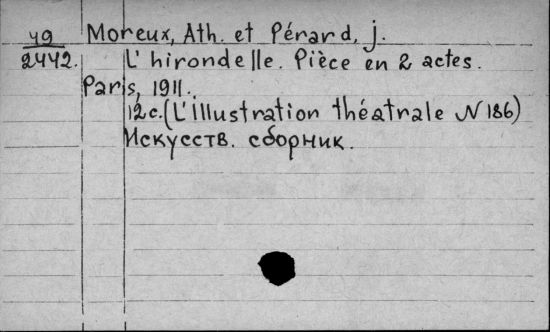 49 Moreux, Ath. et Pérard, j.
2442. L'hirondelle. Pièce en 2 actes.
Paris, 1911.
12c. (L'illustration théatrale N 186)
Искусств. сборник.